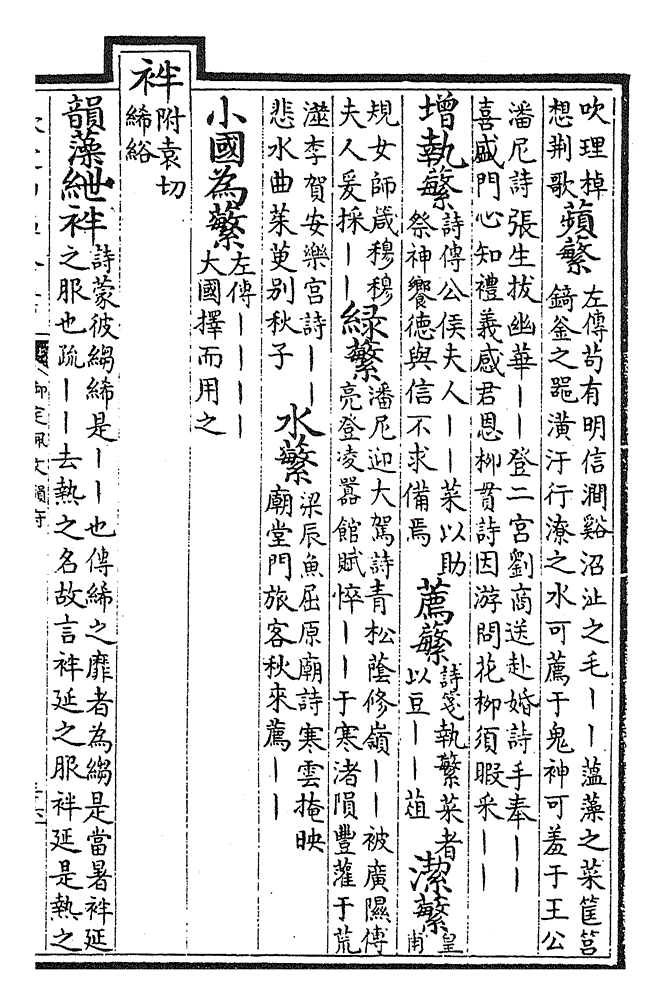 吹理棹
想荆歌
蘋蘩
左傳苟有明信澗谿沼沚之毛丨丨薀藻之菜筐筥
錡釜之器潢汙行潦之水可薦于鬼神可羞于王公
潘尼詩張生拔幽華丨丨登二宮劉商送赴婚詩手奉丨丨
喜盛門心知禮義感君恩柳貫詩因游問花柳須暇采丨丨
增執蘩
詩傳公侯夫人丨丨菜以助
祭神饗德與信不求備焉
薦蘩
詩箋執蘩菜者
以豆丨丨葅
潔蘩
皇
甫
規女師箴穆穆
夫人爰採丨丨
緑蘩
潘尼迎大駕詩青松蔭修嶺丨丨被廣隰傅
亮登凌囂館賦悴丨丨于寒渚隕豐雚于荒
澨李賀安樂宫詩丨丨
悲水曲茱萸别秋子
水蘩
梁辰魚屈原廟詩寒雲掩映
廟堂門旅客秋來薦丨丨
小國為蘩
左傳丨丨丨丨
大國擇而用之
袢
附袁切
絺綌
韻藻紲袢
詩蒙彼縐絺是丨丨也傳絺之靡者為縐是當暑袢延
之服也疏丨丨去熱之名故言袢延之服袢延是熱之